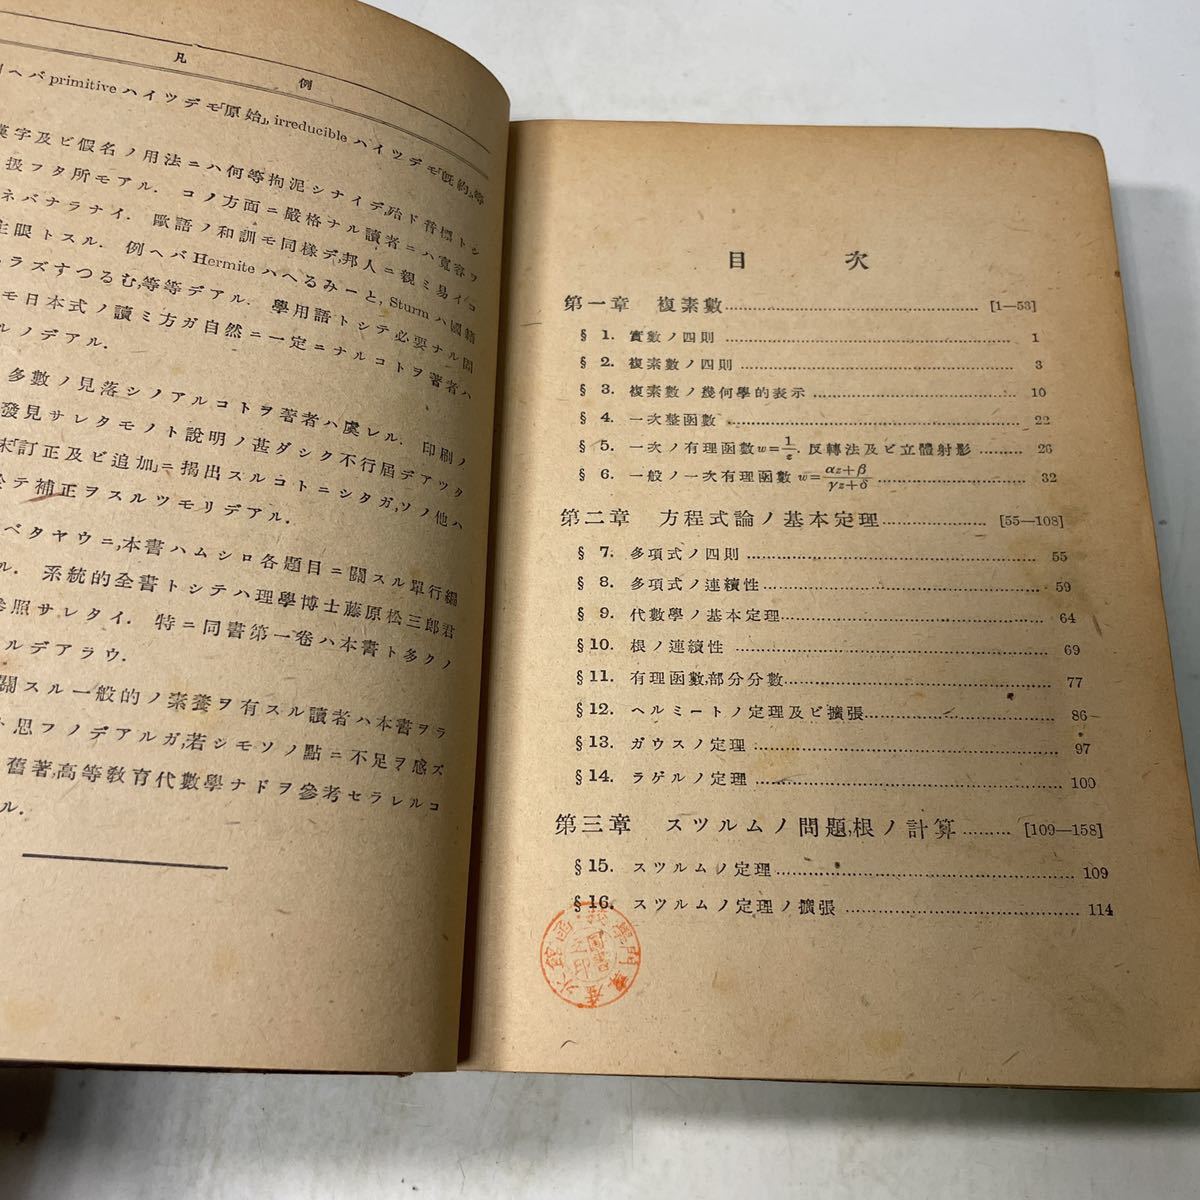 凡例
ヘバ primitive ハイツデモ「原始」, irreducible ハイツデモ「旣約」等
漢字及ビ假名ノ用法ニハ何等拘泥シナイデ,殆ド普標トシ
扱フタ所モアル. コノ方面ニ嚴格ナル讀者ニハ寬容ヲ
ネバナラナイ. 歐語ノ和訓モ同樣デ,邦人ニ親ミ易イコ
主眼トスル. 例ヘバ Hermite ハへるみーと, Sturm ハ國籍
ラズすつるむ,等等デアル. 學用語トシテ必要ナル間
モ日本式ノ讀ミ方ガ自然ニ一定ニナルコトヲ著者ハ
ルノデアル.
多數ノ見落シノアルコトヲ著者ハ虞レル. 印刷ノ
發見サレタモノト說明ノ甚ダシク不行屆デアツタ
末「訂正及ビ追加」ニ揭出スルコトニシタガ,ソノ他ハ
テ補正ヲスルツモリデアル.
ベタヤウニ,本書ハムシロ各題目ニ關スル單行編
ル. 系統的全書トシテハ理學博士藤原松三郎君
參照サレタイ. 特ニ同書第一卷ハ本書ト多クノ
ルデアラウ.
關スル一般的ノ素養ヲ有スル讀者ハ本書ヲラ
ト思フノデアルガ,若シモソノ點ニ不足ヲ感ズ
舊著,高等敎育代數學ナドヲ參考セラレルコ
ル.
目次
第一章 複素數 [1—53]
§ 1. 實數ノ四則 1
§ 2. 複素數ノ四則 3
§ 3. 複素數ノ幾何學的表示 10
§ 4. 一次整函數 22
§ 5. 一次ノ有理函數 w=1/z, 反轉法及ビ立體射影 26
§ 6. 一般ノ一次有理函數 w=αz+β/γz+δ 32
第二章 方程式論ノ基本定理 [55—108]
§ 7. 多項式ノ四則 55
§ 8. 多項式ノ連續性 59
§ 9. 代數學ノ基本定理 64
§10. 根ノ連續性 69
§11. 有理函數,部分分數 77
§12. ヘルミートノ定理及ビ擴張 86
§13. ガウスノ定理 97
§14. ラゲルノ定理 100
第三章 スツルムノ問題,根ノ計算 [109—158]
§15. スツルムノ定理 109
§16. スツルムノ定理ノ擴張 114